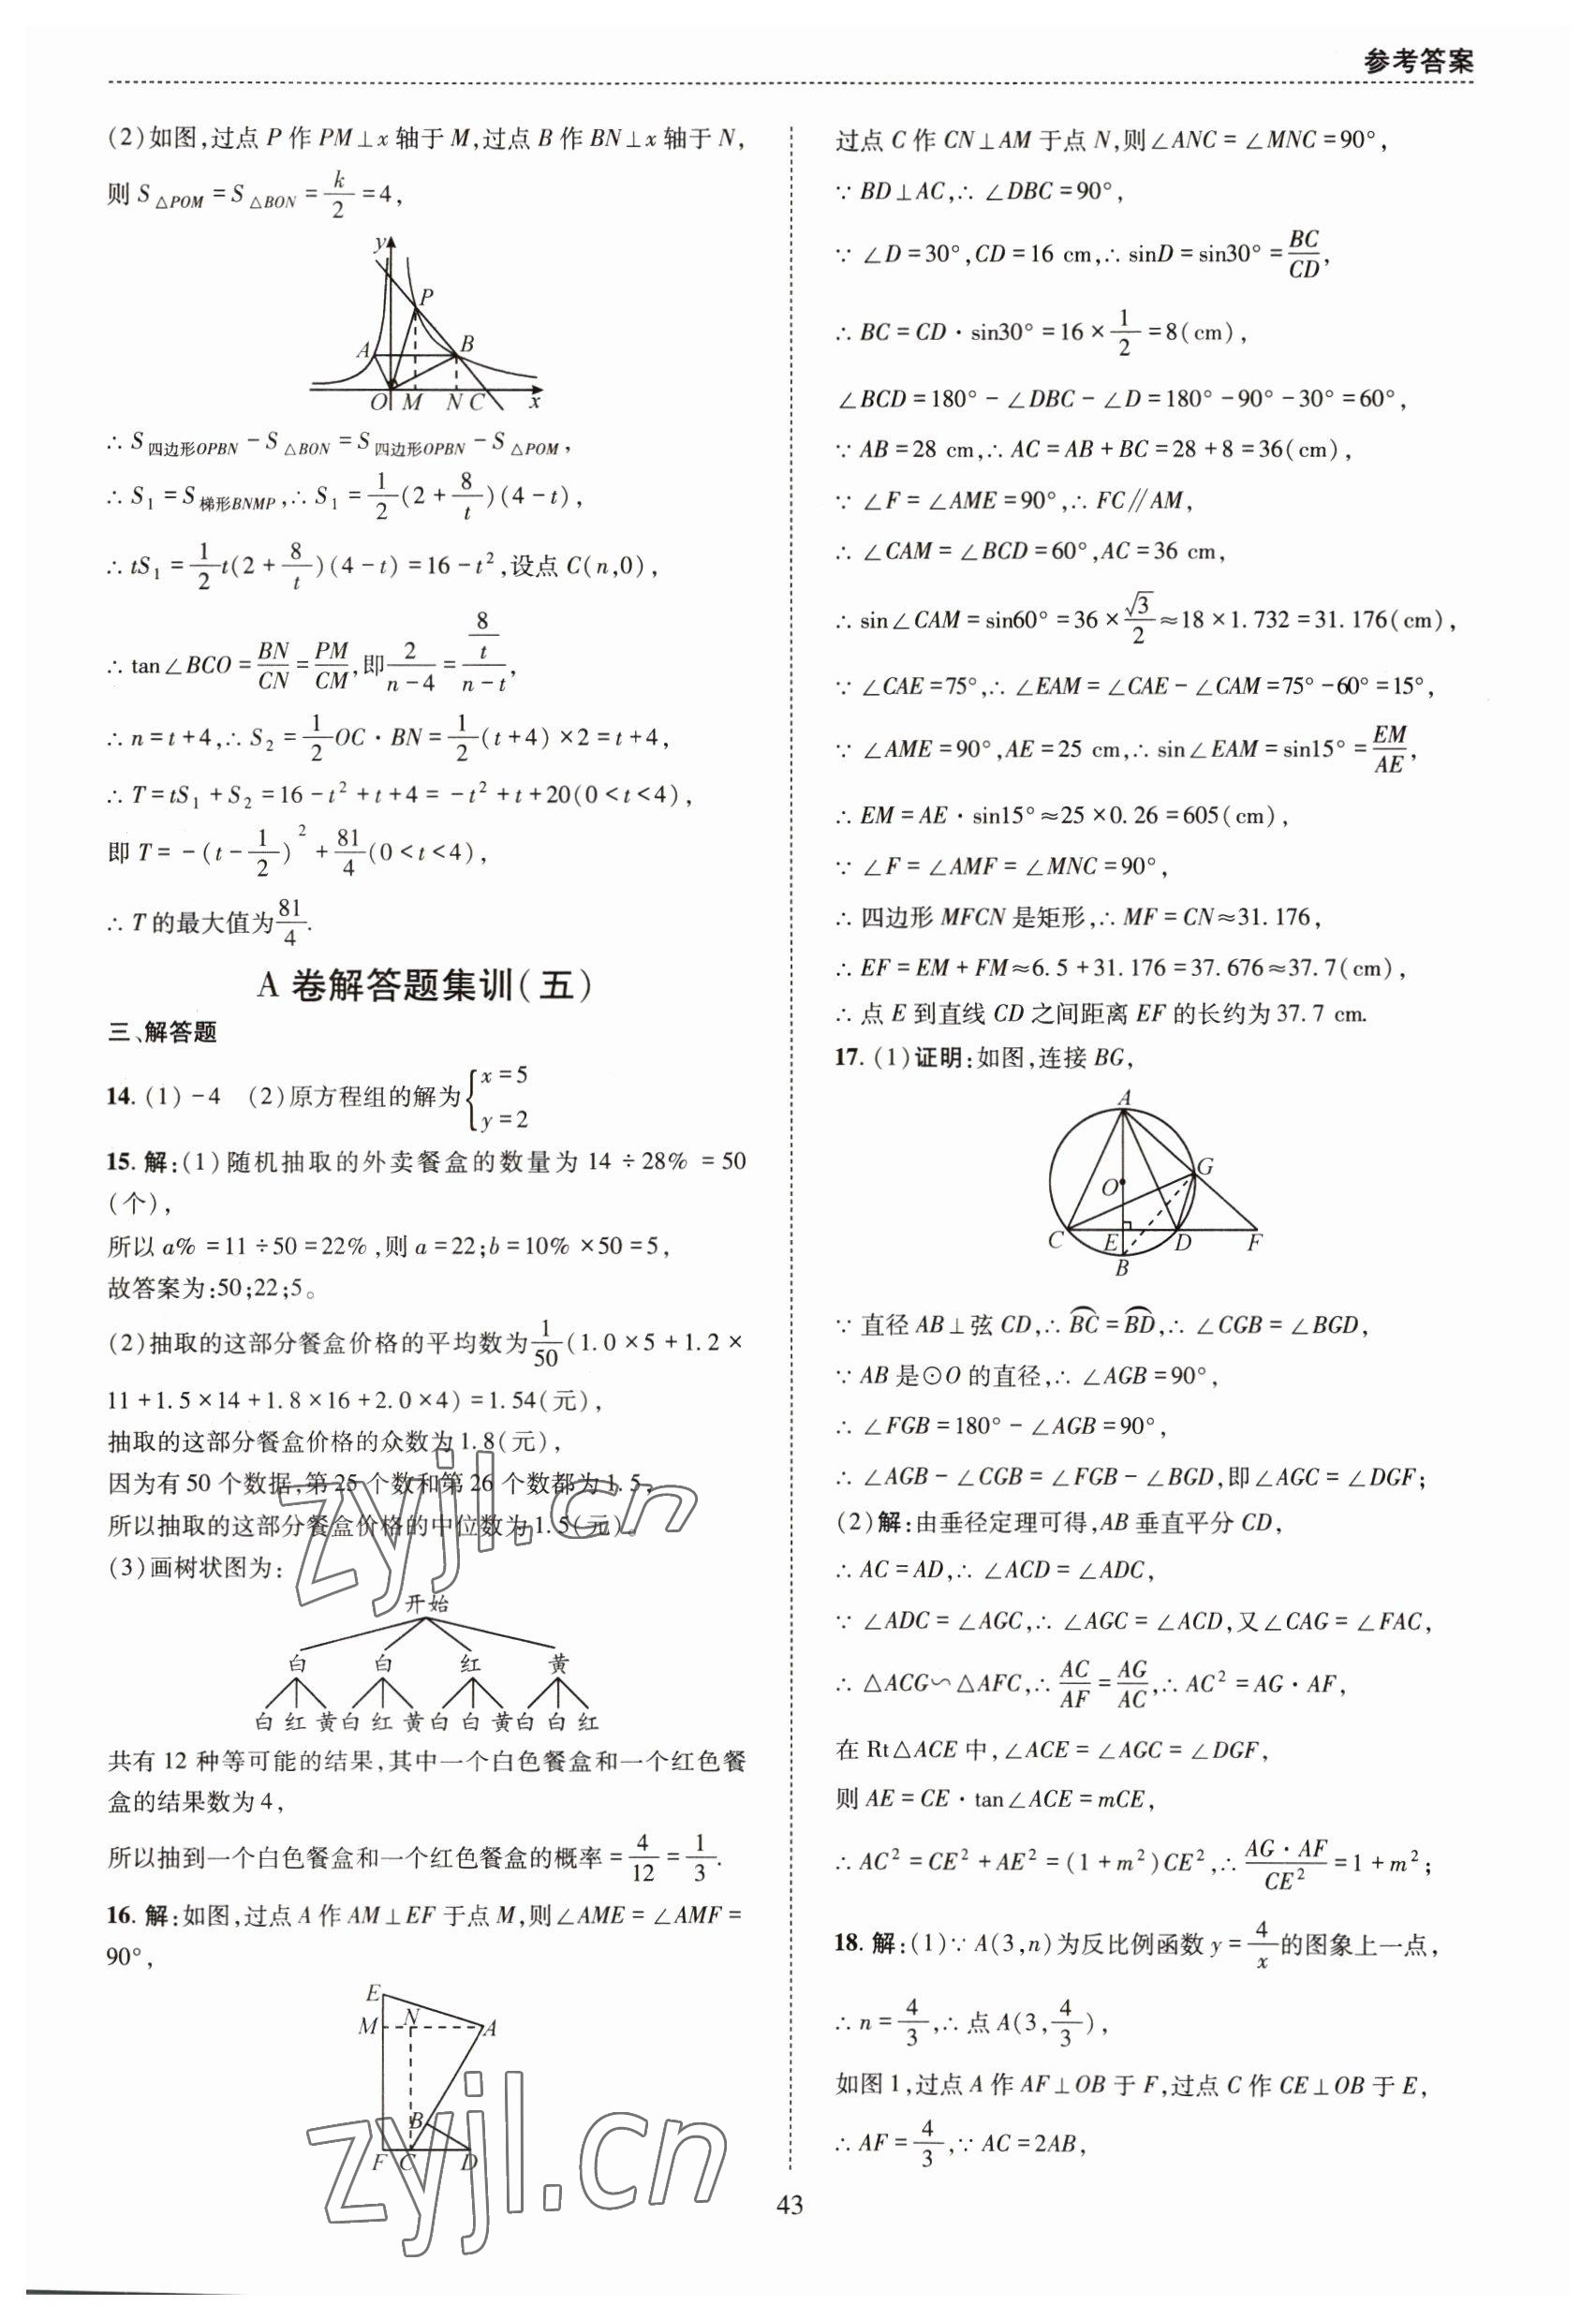 参考答案
(2)如图,过点 P 作 PM⊥x 轴于 M,过点 B 作 BN⊥x 轴于 N,
则 S△POM = S△BON = k/2 = 4,
y
P
A
B
O M N C x
∴ S四边形OPBN − S△BON = S四边形OPBN − S△POM,
∴ S₁ = S梯形BNMP,∴ S₁ = 1/2(2 + 8/t)(4 − t),
∴ tS₁ = 1/2 t(2 + 8/t)(4 − t) = 16 − t²,设点 C(n,0),
∴ tan∠BCO = BN/CN = PM/CM,即 2/(n−4) = (8/t)/(n−t),
∴ n = t + 4,∴ S₂ = 1/2 OC · BN = 1/2(t + 4) × 2 = t + 4,
∴ T = tS₁ + S₂ = 16 − t² + t + 4 = −t² + t + 20(0 < t < 4),
即 T = −(t − 1/2)² + 81/4(0 < t < 4),
∴ T 的最大值为 81/4.
A 卷解答题集训(五)
三、解答题
14. (1) −4 (2)原方程组的解为{x = 5
y = 2
15. 解:(1)随机抽取的外卖餐盒的数量为 14 ÷ 28% = 50
(个),
所以 a% = 11 ÷ 50 = 22%,则 a = 22;b = 10% × 50 = 5,
故答案为:50;22;5。
(2)抽取的这部分餐盒价格的平均数为 1/50(1.0 × 5 + 1.2 ×
11 + 1.5 × 14 + 1.8 × 16 + 2.0 × 4) = 1.54(元),
抽取的这部分餐盒价格的众数为 1.8(元),
因为有 50 个数据,第 25 个数和第 26 个数都为 1.5,
所以抽取的这部分餐盒价格的中位数为 1.5(元)。
(3)画树状图为:
开始
白 白 红 黄
白 红 黄 白 红 黄 白 白 黄 白 白 红
共有 12 种等可能的结果,其中一个白色餐盒和一个红色餐
盒的结果数为 4,
所以抽到一个白色餐盒和一个红色餐盒的概率 = 4/12 = 1/3.
16. 解:如图,过点 A 作 AM⊥EF 于点 M,则∠AME = ∠AMF =
90°,
E
M N A
B
F C D
过点 C 作 CN⊥AM 于点 N,则∠ANC = ∠MNC = 90°,
∵ BD⊥AC,∴ ∠DBC = 90°,
∵ ∠D = 30°,CD = 16 cm,∴ sinD = sin30° = BC/CD,
∴ BC = CD · sin30° = 16 × 1/2 = 8(cm),
∠BCD = 180° − ∠DBC − ∠D = 180° − 90° − 30° = 60°,
∵ AB = 28 cm,∴ AC = AB + BC = 28 + 8 = 36(cm),
∵ ∠F = ∠AME = 90°,∴ FC∥AM,
∴ ∠CAM = ∠BCD = 60°,AC = 36 cm,
∴ sin∠CAM = sin60° = 36 × √3/2 ≈ 18 × 1.732 = 31.176(cm),
∵ ∠CAE = 75°,∴ ∠EAM = ∠CAE − ∠CAM = 75° − 60° = 15°,
∵ ∠AME = 90°,AE = 25 cm,∴ sin∠EAM = sin15° = EM/AE,
∴ EM = AE · sin15° ≈ 25 × 0.26 = 605(cm),
∵ ∠F = ∠AMF = ∠MNC = 90°,
∴ 四边形 MFCN 是矩形,∴ MF = CN ≈ 31.176,
∴ EF = EM + FM ≈ 6.5 + 31.176 = 37.676 ≈ 37.7(cm),
∴ 点 E 到直线 CD 之间距离 EF 的长约为 37.7 cm.
17. (1)证明:如图,连接 BG,
A
G
O
C E D F
B
∵ 直径 AB⊥弦 CD,∴ ⌒BC = ⌒BD,∴ ∠CGB = ∠BGD,
∵ AB 是⊙O 的直径,∴ ∠AGB = 90°,
∴ ∠FGB = 180° − ∠AGB = 90°,
∴ ∠AGB − ∠CGB = ∠FGB − ∠BGD,即∠AGC = ∠DGF;
(2)解:由垂径定理可得,AB 垂直平分 CD,
∴ AC = AD,∴ ∠ACD = ∠ADC,
∵ ∠ADC = ∠AGC,∴ ∠AGC = ∠ACD,又∠CAG = ∠FAC,
∴ △ACG∽△AFC,∴ AC/AF = AG/AC,∴ AC² = AG · AF,
在 Rt△ACE 中,∠ACE = ∠AGC = ∠DGF,
则 AE = CE · tan∠ACE = mCE,
∴ AC² = CE² + AE² = (1 + m²)CE²,∴ AG · AF/CE² = 1 + m²;
18. 解:(1)∵ A(3,n)为反比例函数 y = 4/x 的图象上一点,
∴ n = 4/3,∴ 点 A(3,4/3),
如图 1,过点 A 作 AF⊥OB 于 F,过点 C 作 CE⊥OB 于 E,
∴ AF = 4/3,∵ AC = 2AB,
43
zyjl.cn
zyjl.cn